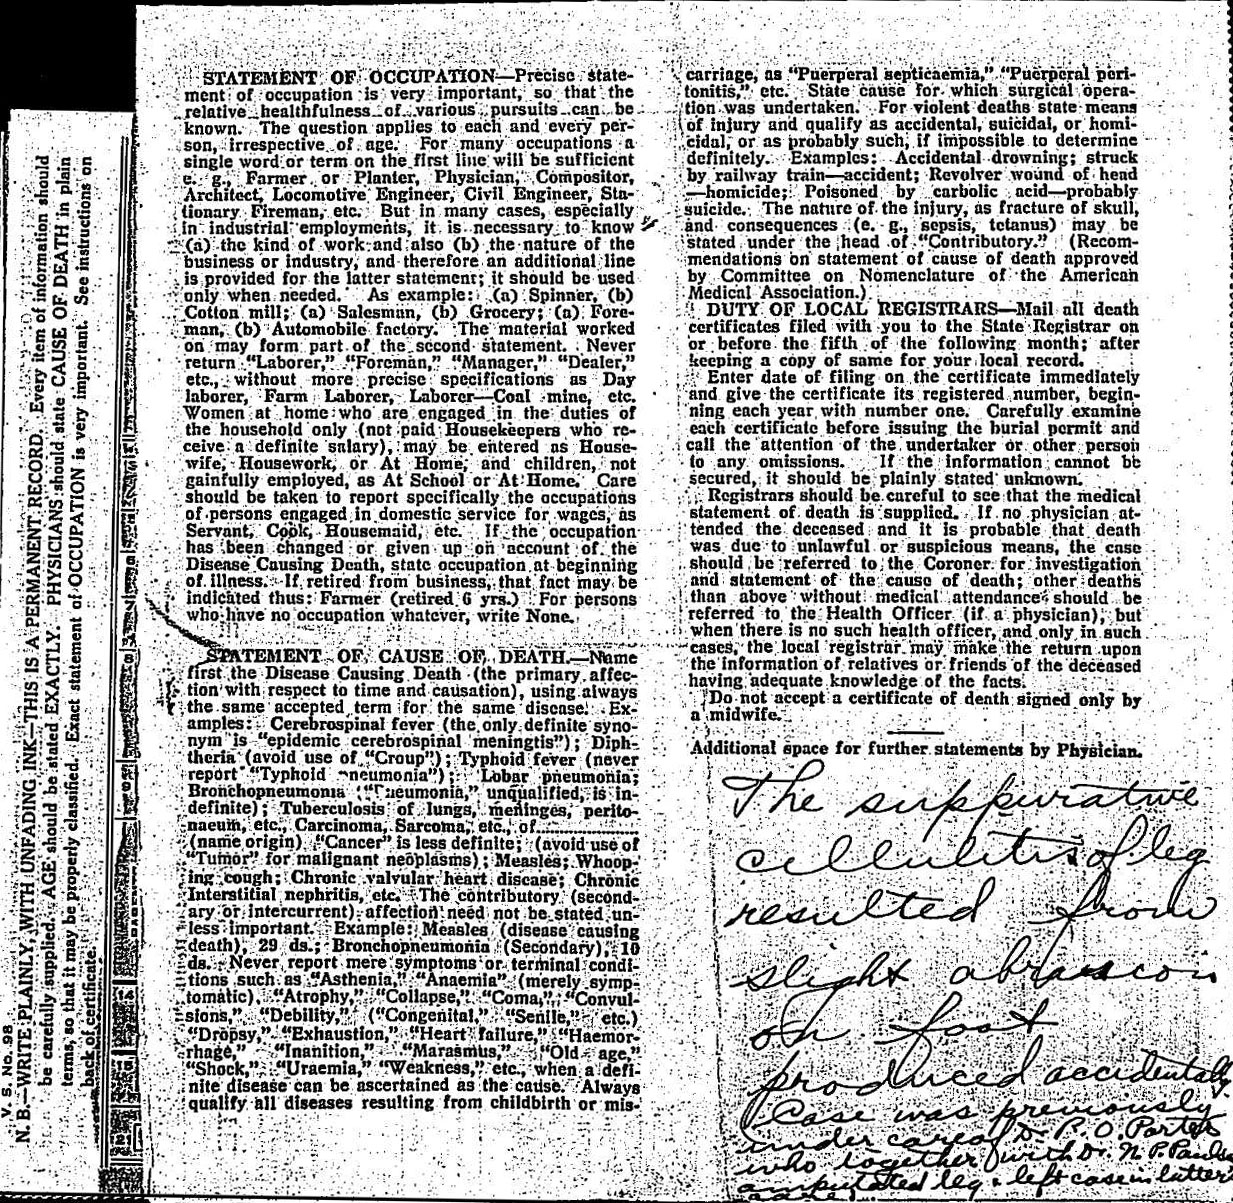 V. S. No. 98
N. B.—WRITE PLAINLY, WITH UNFADING INK—THIS IS A PERMANENT RECORD. Every item of information should
be carefully supplied. AGE should be stated EXACTLY. PHYSICIANS should state CAUSE OF DEATH in plain
terms, so that it may be properly classified. Exact statement of OCCUPATION is very important. See instructions on
back of certificate.
STATEMENT OF OCCUPATION—Precise state-
ment of occupation is very important, so that the
relative healthfulness of various pursuits can be
known. The question applies to each and every per-
son, irrespective of age. For many occupations a
single word or term on the first line will be sufficient
e. g., Farmer or Planter, Physician, Compositor,
Architect, Locomotive Engineer, Civil Engineer, Sta-
tionary Fireman, etc. But in many cases, especially
in industrial employments, it is necessary to know
(a) the kind of work and also (b) the nature of the
business or industry, and therefore an additional line
is provided for the latter statement; it should be used
only when needed. As example: (a) Spinner, (b)
Cotton mill; (a) Salesman, (b) Grocery; (a) Fore-
man, (b) Automobile factory. The material worked
on may form part of the second statement. Never
return "Laborer," "Foreman," "Manager," "Dealer,"
etc., without more precise specifications as Day
laborer, Farm Laborer, Laborer—Coal mine, etc.
Women at home who are engaged in the duties of
the household only (not paid Housekeepers who re-
ceive a definite salary), may be entered as House-
wife, Housework, or At Home, and children, not
gainfully employed, as At School or At Home. Care
should be taken to report specifically the occupations
of persons engaged in domestic service for wages, as
Servant, Cook, Housemaid, etc. If the occupation
has been changed or given up on account of the
Disease Causing Death, state occupation at beginning
of illness. If retired from business, that fact may be
indicated thus: Farmer (retired 6 yrs.) For persons
who have no occupation whatever, write None.
STATEMENT OF CAUSE OF DEATH.—Name
first the Disease Causing Death (the primary affec-
tion with respect to time and causation), using always
the same accepted term for the same disease. Ex-
amples: Cerebrospinal fever (the only definite syno-
nym is "epidemic cerebrospinal meningtis"); Diph-
theria (avoid use of "Croup"); Typhoid fever (never
report "Typhoid pneumonia"); Lobar pneumonia;
Bronchopneumonia ("Pneumonia," unqualified, is in-
definite); Tuberculosis of lungs, meninges, perito-
naeum, etc., Carcinoma, Sarcoma, etc., of..................
(name origin) "Cancer" is less definite; (avoid use of
"Tumor" for malignant neoplasms); Measles; Whoop-
ing cough; Chronic valvular heart disease; Chronic
Interstitial nephritis, etc. The contributory (second-
ary or intercurrent) affection need not be stated un-
less important. Example: Measles (disease causing
death), 29 ds.; Bronchopneumonia (Secondary), 10
ds. Never report mere symptoms or terminal condi-
tions such as "Asthenia," "Anaemia" (merely symp-
tomatic), "Atrophy," "Collapse," "Coma," "Convul-
sions," "Debility," ("Congenital," "Senile," etc.)
"Dropsy," "Exhaustion," "Heart failure," "Haemor-
rhage," "Inanition," "Marasmus," "Old age,"
"Shock," "Uraemia," "Weakness," etc., when a defi-
nite disease can be ascertained as the cause. Always
qualify all diseases resulting from childbirth or mis-
carriage, as "Puerperal septicaemia," "Puerperal peri-
tonitis," etc. State cause for which surgical opera-
tion was undertaken. For violent deaths state means
of injury and qualify as accidental, suicidal, or homi-
cidal, or as probably such, if impossible to determine
definitely. Examples: Accidental drowning; struck
by railway train—accident; Revolver wound of head
—homicide; Poisoned by carbolic acid—probably
suicide. The nature of the injury, as fracture of skull,
and consequences (e. g., sepsis, tetanus) may be
stated under the head of "Contributory." (Recom-
mendations on statement of cause of death approved
by Committee on Nomenclature of the American
Medical Association.)
DUTY OF LOCAL REGISTRARS—Mail all death
certificates filed with you to the State Registrar on
or before the fifth of the following month; after
keeping a copy of same for your local record.
Enter date of filing on the certificate immediately
and give the certificate its registered number, begin-
ning each year with number one. Carefully examine
each certificate before issuing the burial permit and
call the attention of the undertaker or other person
to any omissions. If the information cannot be
secured, it should be plainly stated unknown.
Registrars should be careful to see that the medical
statement of death is supplied. If no physician at-
tended the deceased and it is probable that death
was due to unlawful or suspicious means, the case
should be referred to the Coroner for investigation
and statement of the cause of death; other deaths
than above without medical attendance should be
referred to the Health Officer (if a physician), but
when there is no such health officer, and only in such
cases, the local registrar may make the return upon
the information of relatives or friends of the deceased
having adequate knowledge of the facts.
Do not accept a certificate of death signed only by
a midwife.
Additional space for further statements by Physician.
The suppurative
cellulitis of leg
resulted from
slight abrascion
on foot
produced accidentally.
Case was previously
under care of Dr. P. O. Porter
who together with Dr. N. P. Pauls
amputated leg & left case in latter's
care.